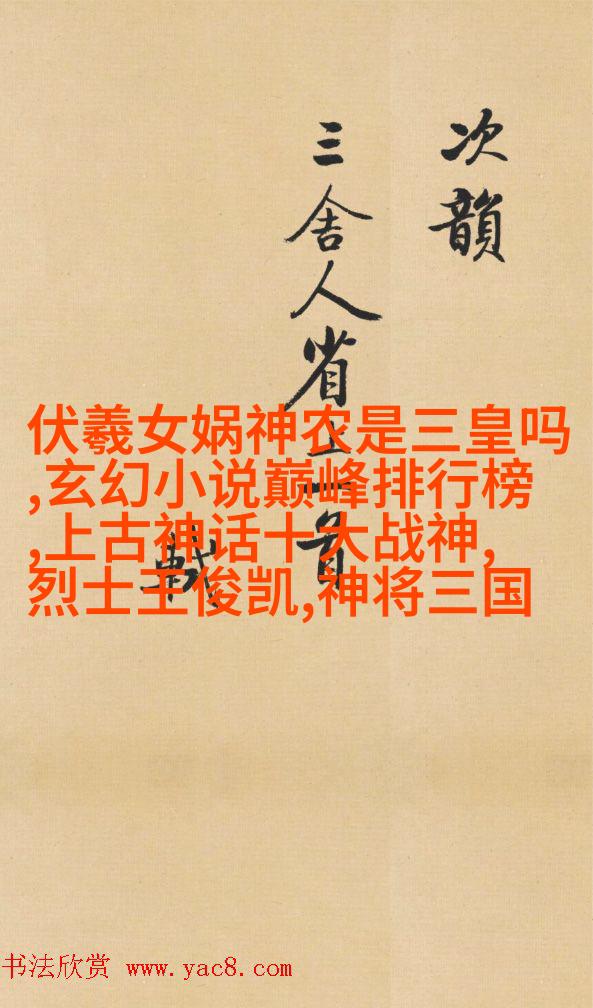 次韻
三舍人省上一首
軾
伏羲女娲神农是三皇吗
,玄幻小说巅峰排行榜
,上古神话十大战神,
烈士王俊凯,神将三国
书法欣赏 www.yac8.com